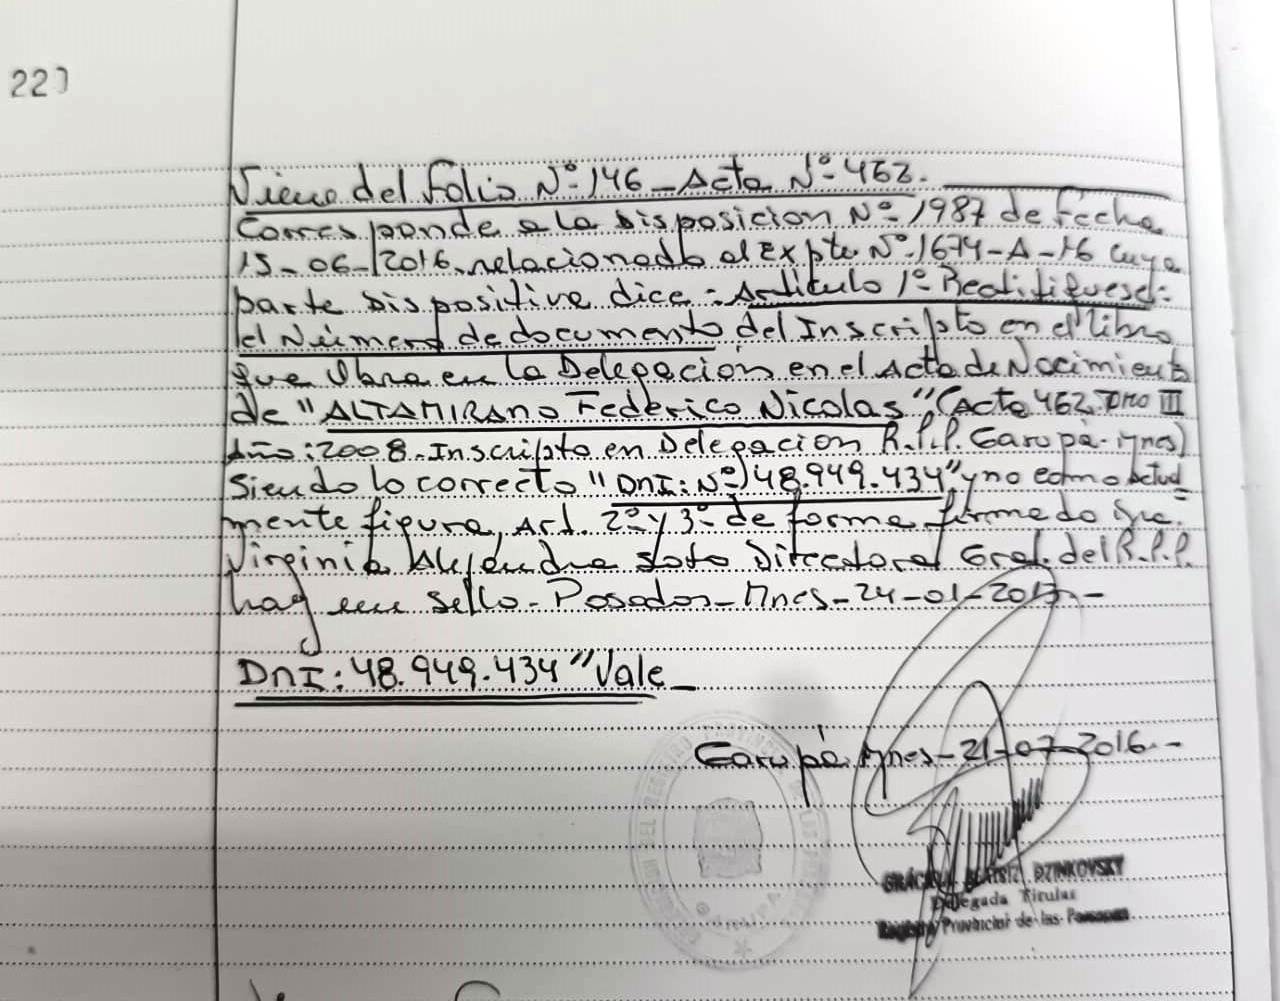 22)
Viene del Folio Nº 146 - Acta Nº 462.
Corresponde a la Disposicion Nº 1987 de Fecha
15-06-2016. relacionado al Expte Nº 1674-A-16 cuya
parte Dispositiva dice: Artículo 1º Rectifiquese:
el Número de documento del Inscripto en el libro
que Obra en la Delegación en el Acta de Nacimiento
de "ALTAMIRANO Federico Nicolas", (Acta 462. Tomo III
Año: 2008. Inscripto en Delegacion R.P.P. Garupá - Mnes)
Siendo lo correcto "DNI: Nº) 48.949.434" y no como actual
mente figura, Art. 2º y 3º de forma firmado
Virginia Alejandra Soto Directora Gral. del R.P.P.
hay un Sello - Posadas - Mnes - 24-01-
DNI: 48.949.434" Vale
Garupá Mnes - 21-07-2016.-
DZINKOVSKY
Delegada Titular
Provincial de las Personas
GARUPA